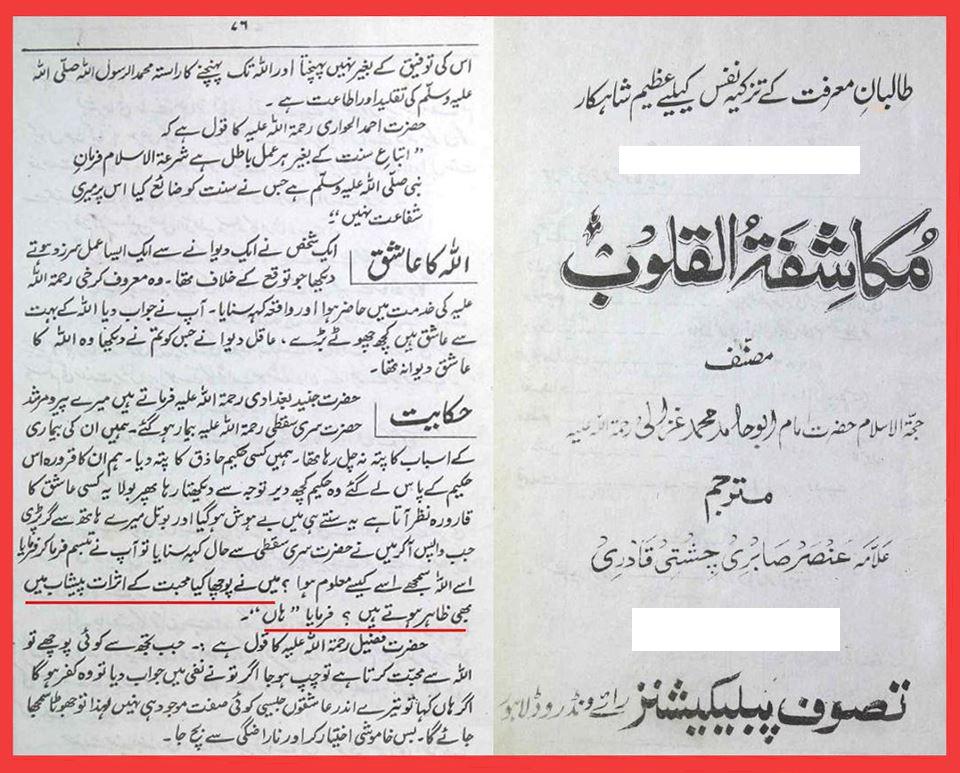 طالبانِ معرفت کے تزکیہ نفس کیلئے عظیم شاہکار
مُکاشِفَۃُ القلوب
مصنف
حجۃ الاسلام حضرت امام ابو حامد محمد غزالی رحمۃ اللہ علیہ
مترجم
علامہ عنصر صابری چشتی قادری
تصوف پبلیکیشنز رائے ونڈ روڈ لاہور
۷۶
اس کی توفیق کے بغیر نہیں پہنچتا اور اللہ تک پہنچنے کا راستہ محمد الرسول اللہ صلی اللہ
علیہ وسلم کی تقلید اور اطاعت ہے ۔
حضرت احمد الحواری رحمۃ اللہ علیہ کا قول ہے کہ
" اتباع سنت کے بغیر ہر عمل باطل ہے شرعۃ الاسلام فرمان
نبی صلی اللہ علیہ وسلم ہے جس نے سنت کو ضائع کیا اس پر میری
شفاعت نہیں "
اللہ کا عاشق
ایک شخص نے ایک دیوانے سے ایک ایسا عمل سرزد ہوتے
دیکھا جو توقع کے خلاف تھا ۔ وہ معروف کرخی رحمۃ اللہ
علیہ کی خدمت میں حاضر ہوا اور واقعہ کہہ سنایا ۔ آپ نے جواب دیا اللہ کے بہت
سے عاشق ہیں کچھ چھوٹے بڑے ، عاقل دیوانے جس کو تم نے دیکھا وہ اللہ کا
عاشق دیوانہ تھا ۔
حکایت
حضرت جنید بغدادی رحمۃ اللہ علیہ فرماتے ہیں میرے پیر و مرشد
حضرت سری سقطی رحمۃ اللہ علیہ بیمار ہو گئے ۔ ہمیں ان کی بیماری
کے اسباب کا پتہ نہ چل رہا تھا ۔ ہمیں کسی حکیم حاذق کا پتہ دیا ۔ ہم ان کا قارورہ اس
حکیم کے پاس لے گئے وہ حکیم کچھ دیر توجہ سے دیکھتا رہا پھر بولا یہ کسی عاشق کا
قارورہ نظر آتا ہے یہ سنتے ہی میں بے ہوش ہو گیا اور بوتل میرے ہاتھ سے گر پڑی
جب واپس آ کر میں نے حضرت سری سقطی سے حال کہہ سنایا تو آپ نے تبسم فرما کر فرمایا
اسے اللہ سمجھے اسے کیسے معلوم ہوا ؟ میں نے پوچھا کیا محبت کے اثرات پیشاب میں
بھی ظاہر ہوتے ہیں ؟ فرمایا " ہاں " ۔
حضرت فضیل رحمۃ اللہ علیہ کا قول ہے :۔ جب تجھ سے کوئی پوچھے تو
اللہ سے محبت کرتا ہے تو چپ ہو جا اگر تو نے نفی میں جواب دیا تو وہ کفر ہو گا
اگر ہاں کہا تو تیرے اندر عاشقوں جیسی کوئی صفت موجود ہی نہیں لہٰذا تو جھوٹا سمجھا
جائے گا ۔ بس خاموشی اختیار کر اور ناراضگی سے بچ جا ۔